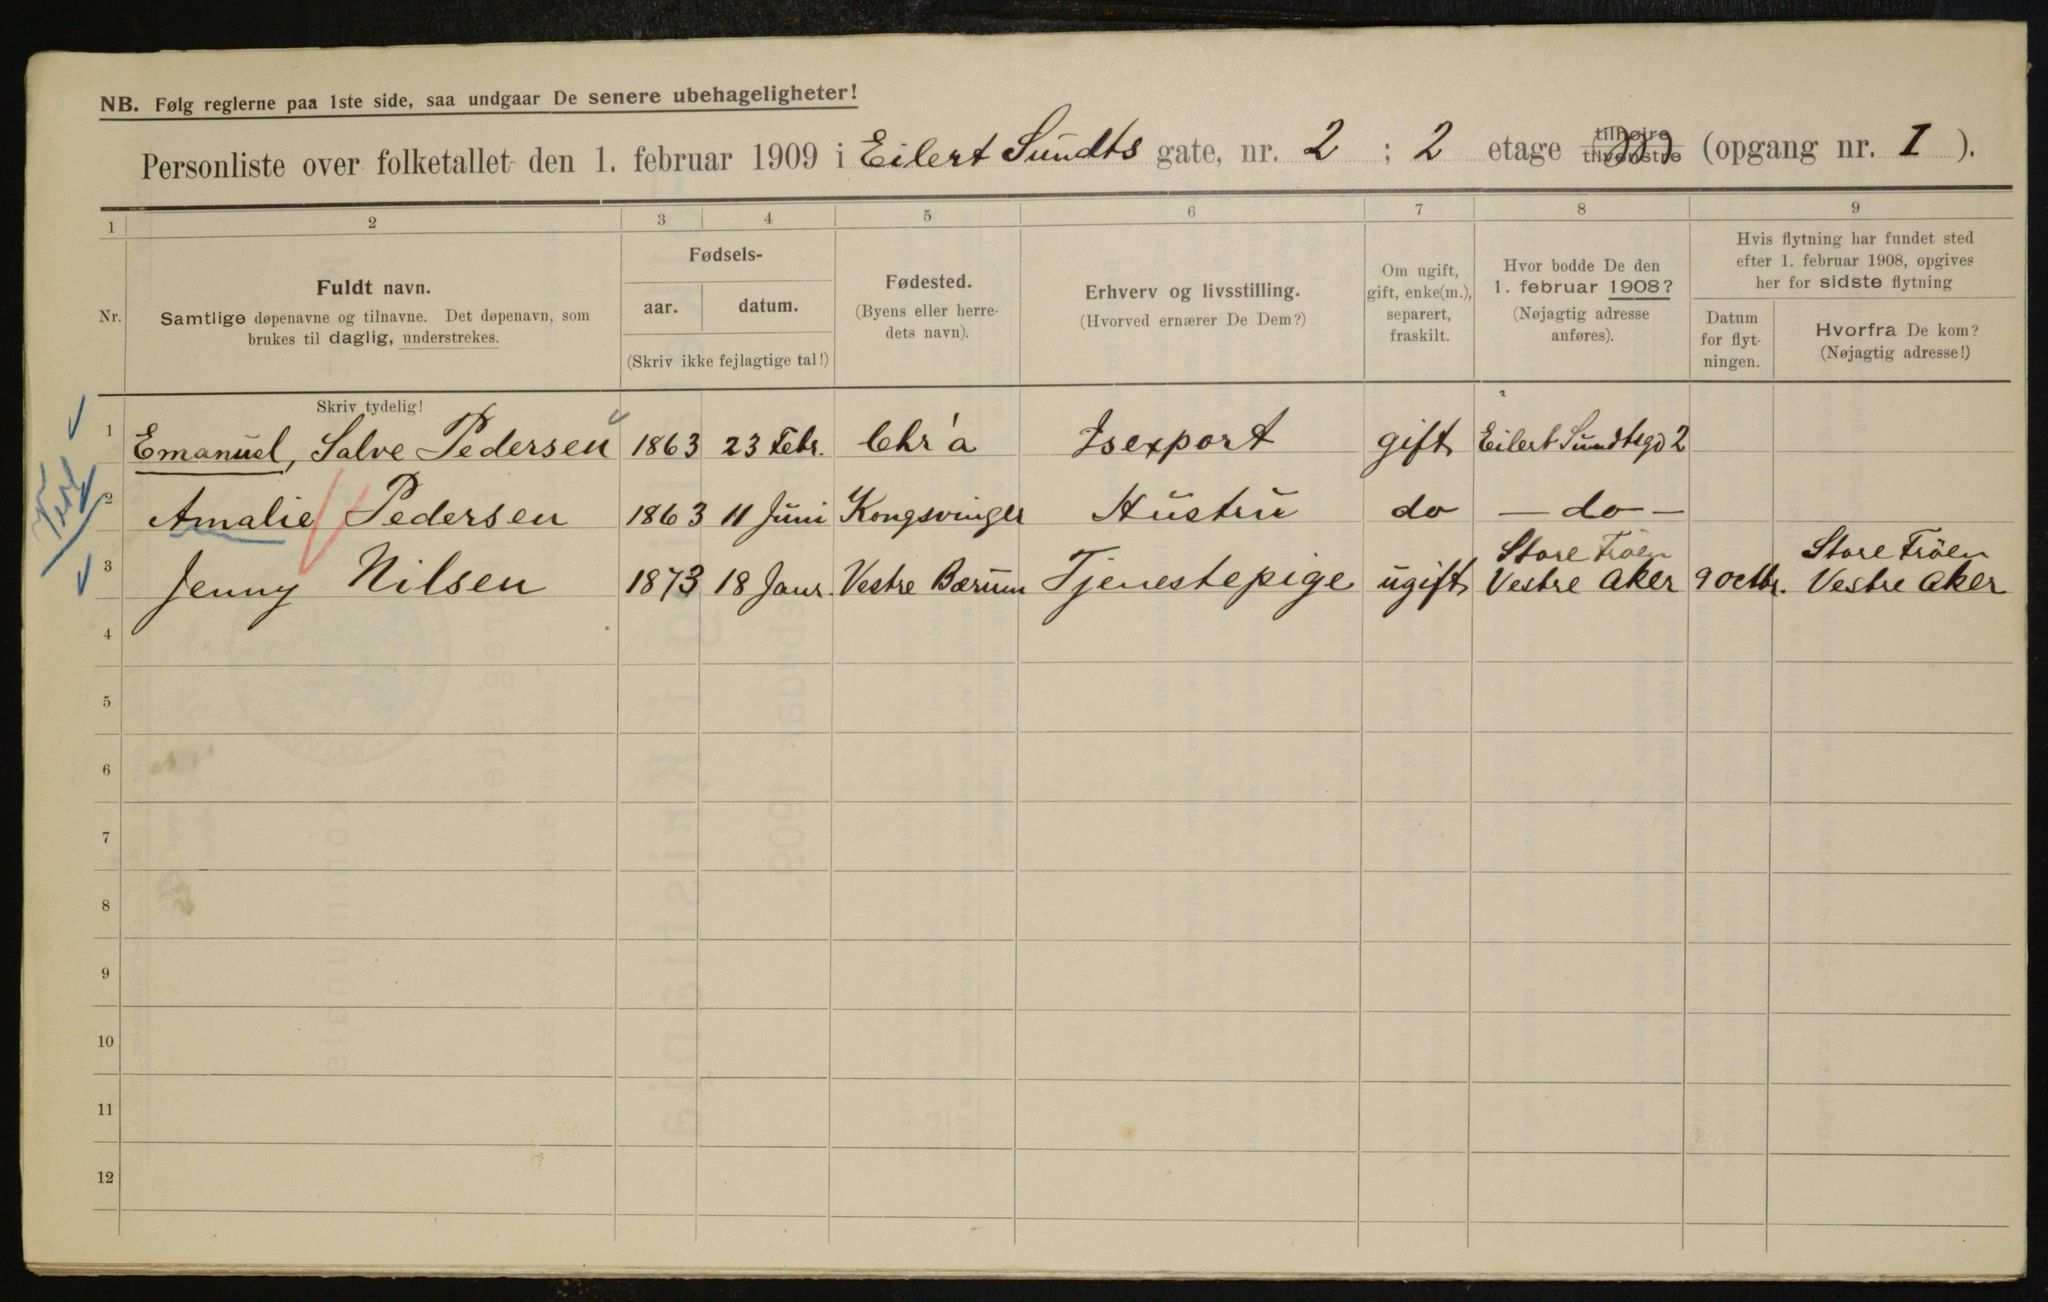 NB. Følg reglerne paa 1ste side, saa undgaar De senere ubehageligheter!
Personliste over folketallet den 1. februar 1909 i Eilert Sundts gate, nr. 2 ; 2 etage (tilhøire tilvenstre) (opgang nr. I ).
1 2 3 4 5 6 7 8 9
Nr.
Fuldt navn.
Samtlige døpenavne og tilnavne. Det døpenavn, som
brukes til daglig, understrekes.
Skriv tydelig!
Fødsels-
aar. datum.
(Skriv ikke fejlagtige tal!)
Fødested.
(Byens eller herre-
dets navn).
Erhverv og livsstilling.
(Hvorved ernærer De Dem?)
Om ugift,
gift, enke(m.),
separert,
fraskilt.
Hvor bodde De den
1. februar 1908?
(Nøjagtig adresse
anføres).
Hvis flytning har fundet sted
efter 1. februar 1908, opgives
her for sidste flytning
Datum
for flyt-
ningen.
Hvorfra De kom?
(Nøjagtig adresse!)
1 Emanuel, Salve Pedersen 1863 23 Febr. Chr'a Isexport gift Eilert Sundtsgd 2
2 Amalie Pedersen 1863 11 Juni Kongsvinger Hustru do — do —
3 Jenny Nilsen 1873 18 Janr. Vestre Bærum Tjenestepige ugift Store Fröen Vestre Aker 9 octbr. Store Fröen Vestre Aker
4
5
6
7
8
9
10
11
12